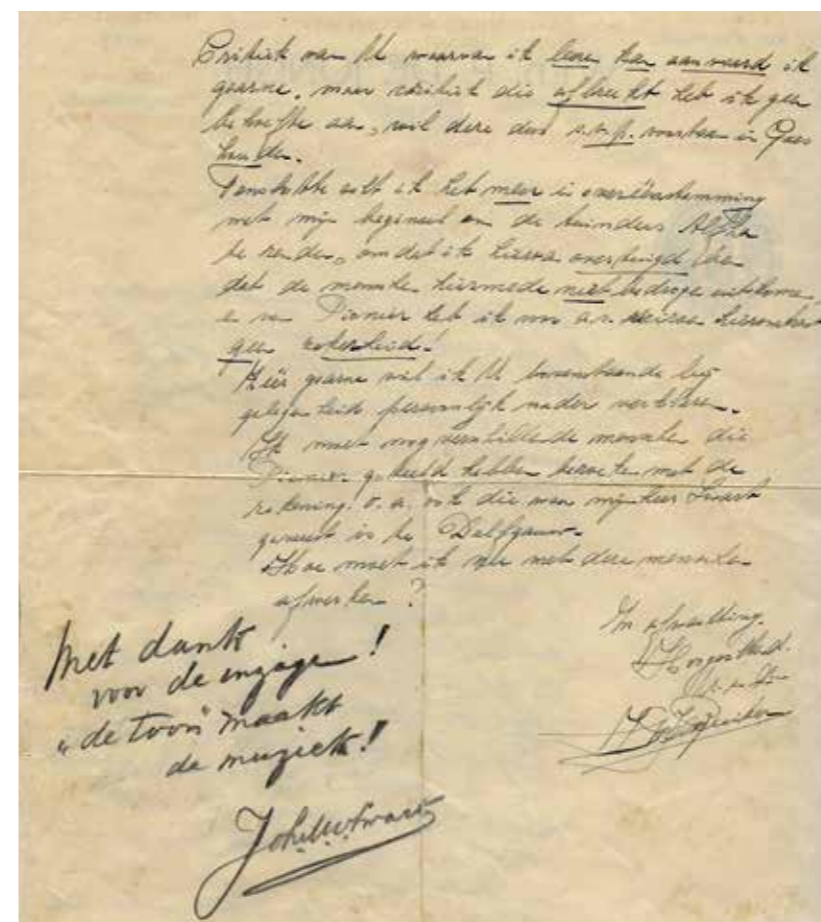 Critiek van U waarvan ik leren kan aanvaard ik
gaarne, maar critiek die afbreekt heb ik geen
behoefte aan, wil deze dus s.v.p. voortaan in
houden.
zelf ik het meer in overeenstemming
met mijn beginsel om de tuinders Alpha
te zenden, omdat ik hiervan overtuigd ben
dat de menschen hiermede niet bedrogen uitkomen,
en van Pionier heb ik
geen zekerheid!
Zéér gaarne wil ik U bovenstaande bij
gelegenheid persoonlijk nader verklaren.
Ik moet nog verschillende menschen die
Pionier geteeld hebben bezoeken met de
rekening. o.a. ook die waar mijnheer Swart
geweest is te Delfgauw.
Hoe moet ik nu met deze menschen
afwerken?
In afwachting,
Hoogachtend.
Met dank
voor de inzage!
"de toon" maakt
de muziek!